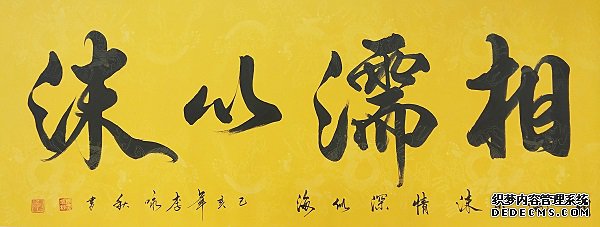 相濡以沫
沫情深似海
己亥年李咏秋书
织梦内容管理系统
DEDECMS.COM